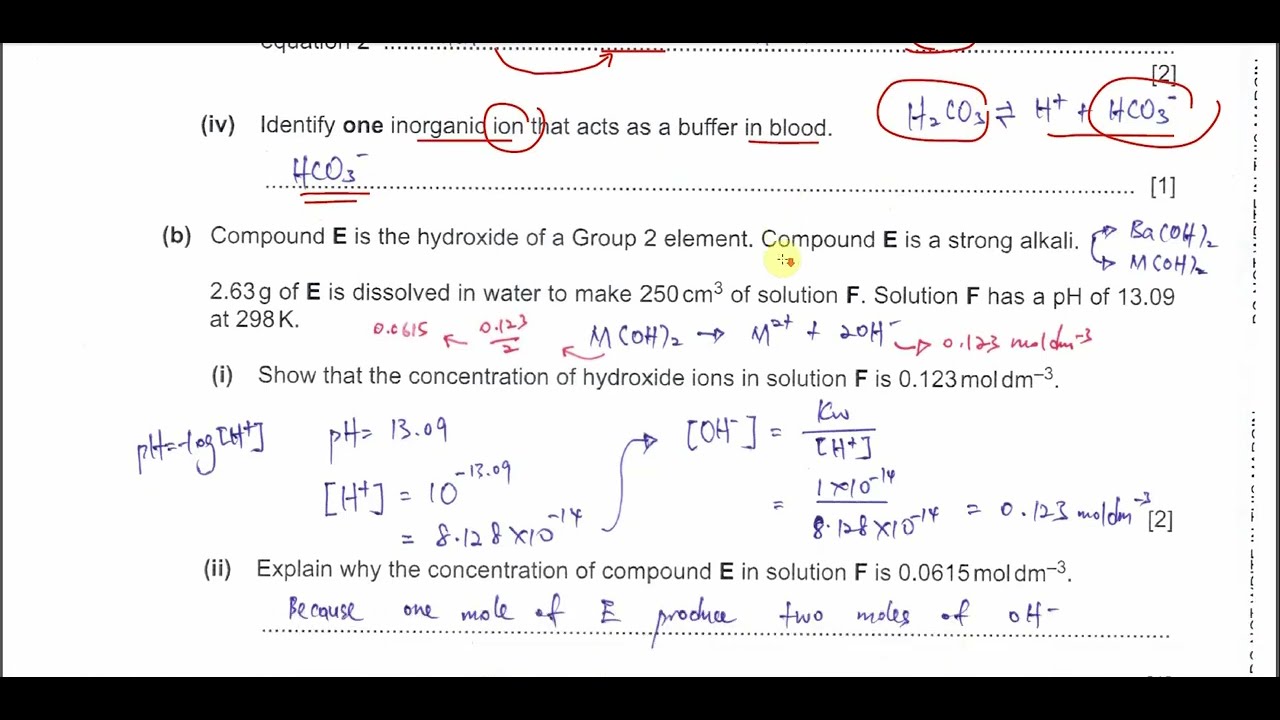 equation 2
[2]
(iv) Identify one inorganic ion that acts as a buffer in blood.
H₂CO₃ ⇌ H⁺ + HCO₃⁻
HCO₃⁻
[1]
(b) Compound E is the hydroxide of a Group 2 element. Compound E is a strong alkali.
Ba(OH)₂
M(OH)₂
2.63 g of E is dissolved in water to make 250 cm³ of solution F. Solution F has a pH of 13.09
at 298 K.
0.0615 ← 0.123/2 ← M(OH)₂ → M²⁺ + 2OH⁻ → 0.123 moldm⁻³
(i) Show that the concentration of hydroxide ions in solution F is 0.123 mol dm⁻³.
pH=-log[H⁺]
pH = 13.09
[H⁺] = 10^-13.09
= 8.128×10⁻¹⁴
[OH⁻] = Kw/[H⁺]
= 1×10⁻¹⁴/8.128×10⁻¹⁴ = 0.123 moldm⁻³
[2]
(ii) Explain why the concentration of compound E in solution F is 0.0615 mol dm⁻³.
Because one mole of E produce two moles of OH⁻